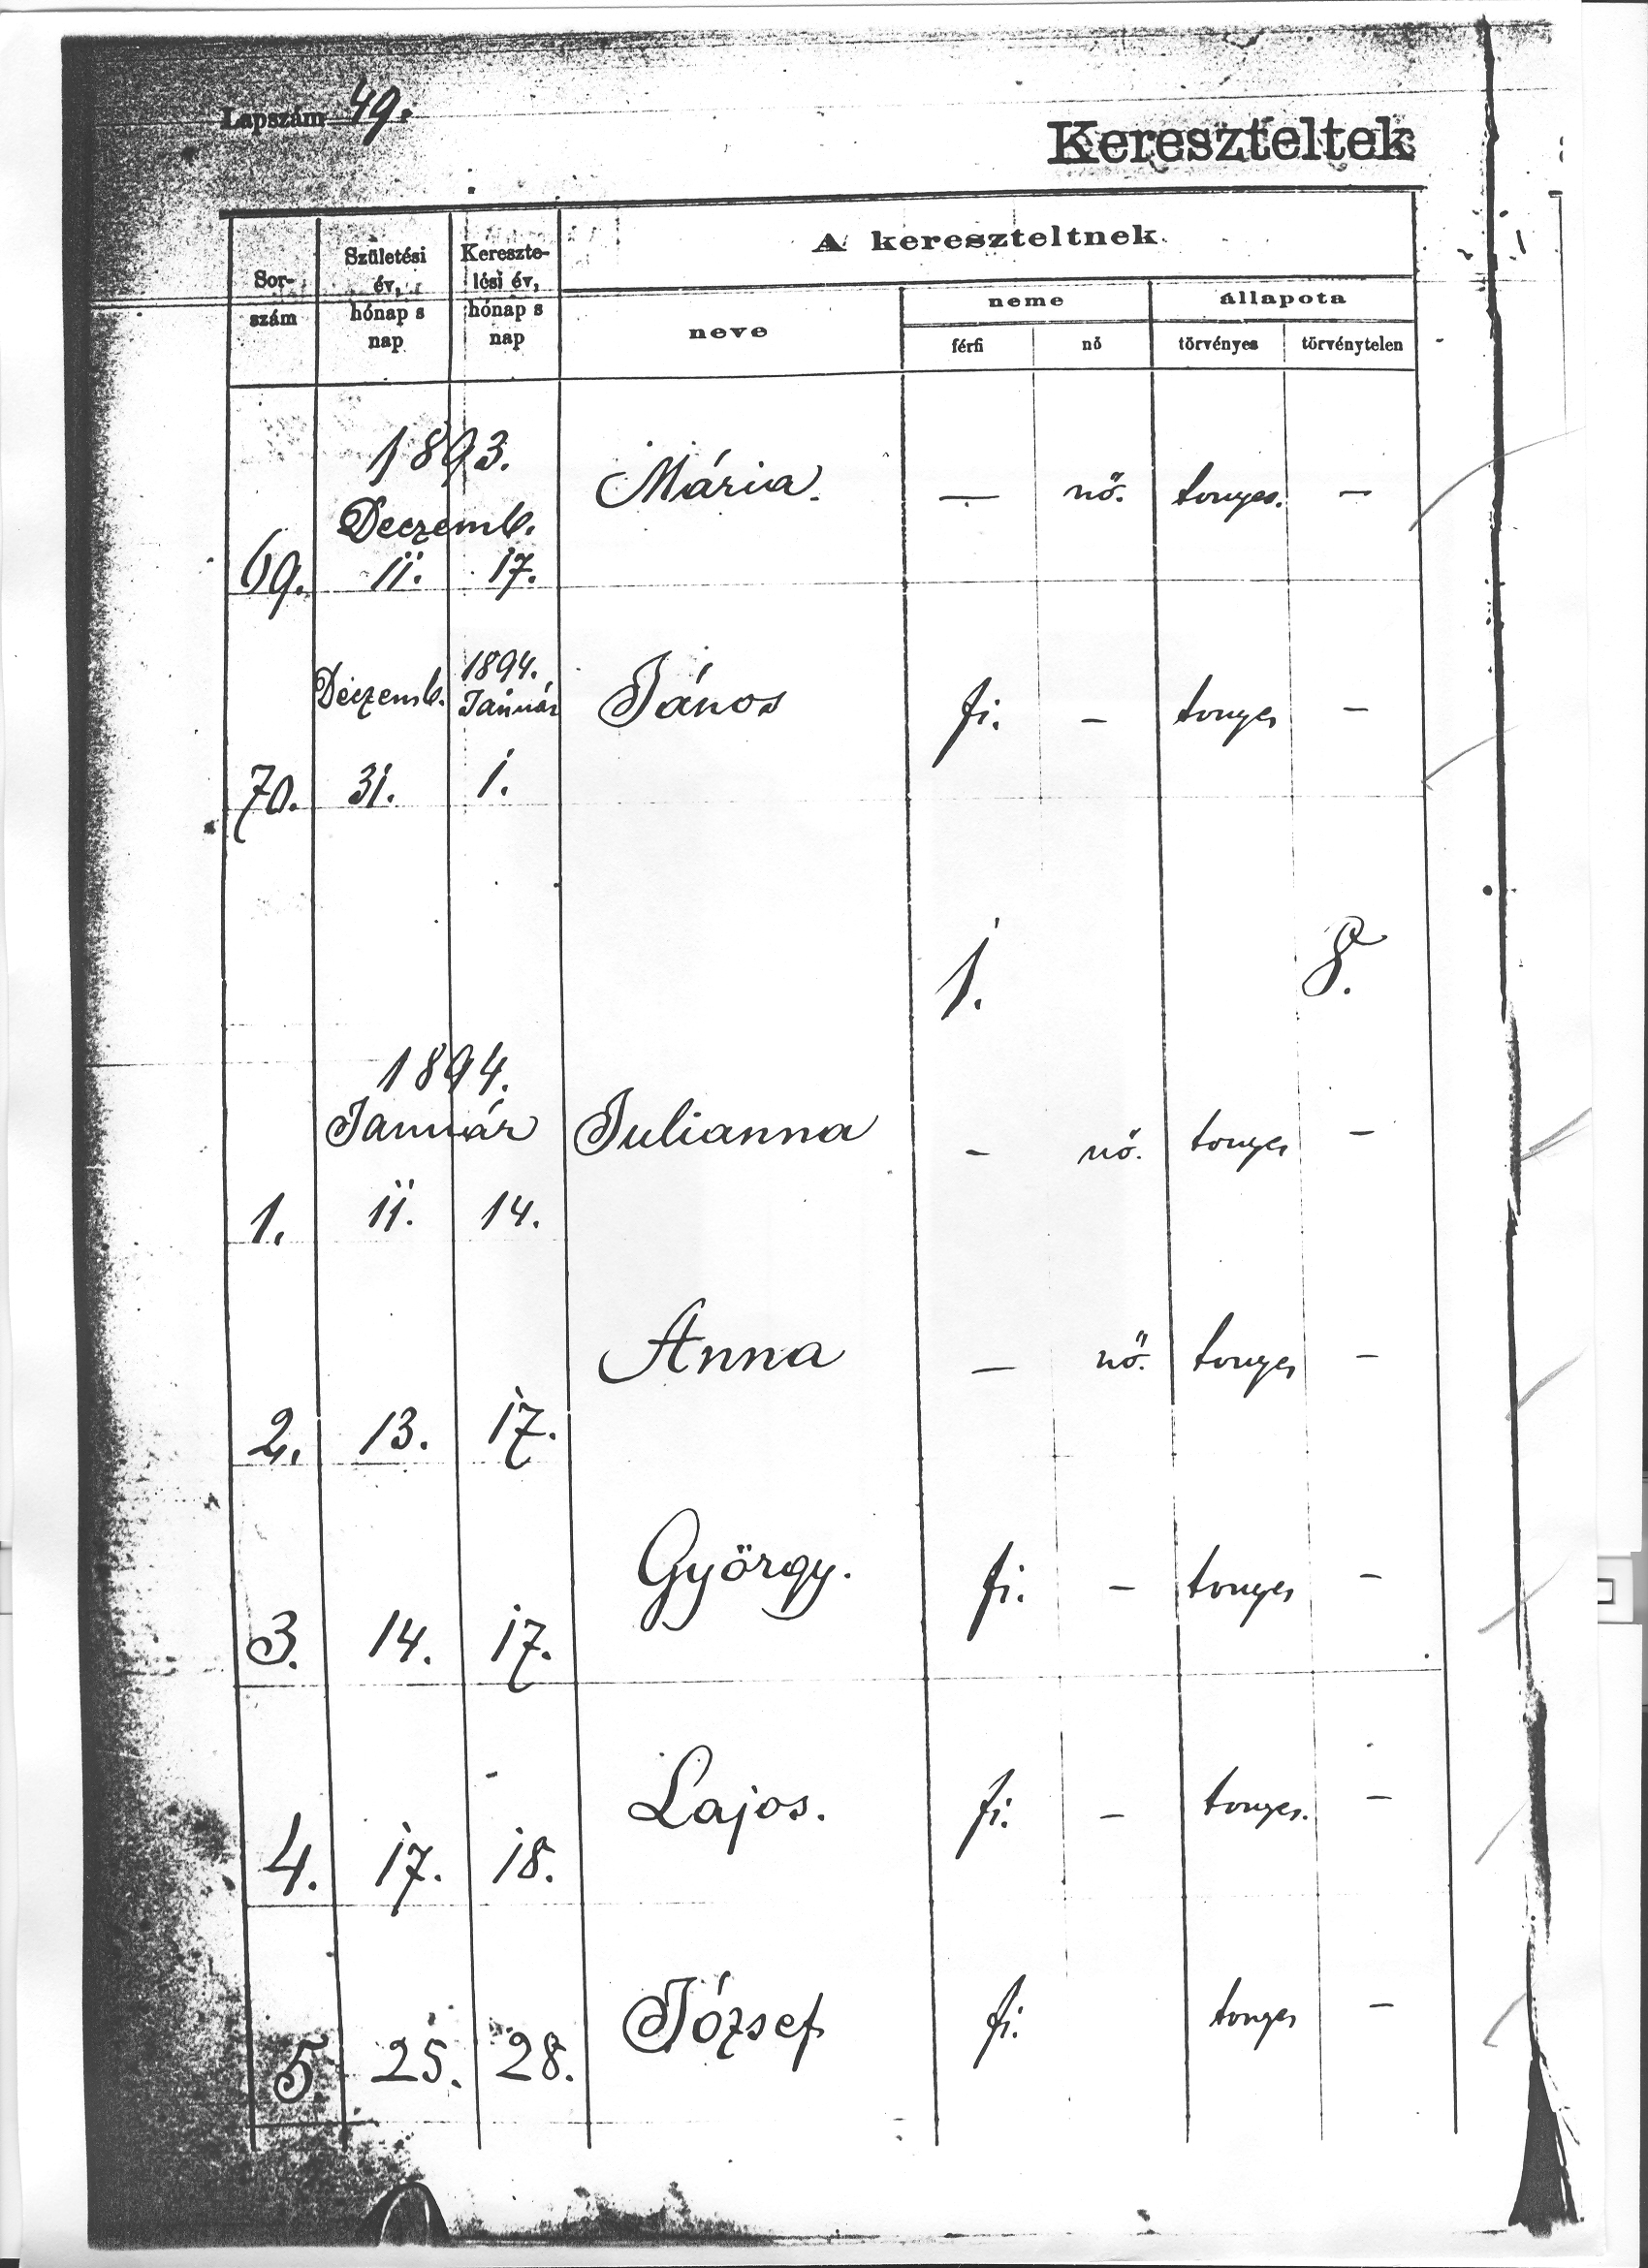 Lapszám 49.
Kereszteltek
Sor-
szám
Születési
év,
hónap s
nap
Kereszte-
lési év,
hónap s
nap
A kereszteltnek
neve
neme
állapota
férfi
nő
törvényes
törvénytelen
1893.
Deczemb.
69. 11. 17. Mária. — nő. tvnyes. —
1894.
Deczemb. Január
70. 31. 1. János fi. — tvnyes —
1. 8.
1894.
Január
1. 11. 14. Julianna — nő. tvnyes —
2. 13. 17. Anna — nő. tvnyes —
3. 14. 17. György. fi. — tvnyes —
4. 17. 18. Lajos. fi. — tvnyes. —
5 25. 28. József fi. tvnyes —